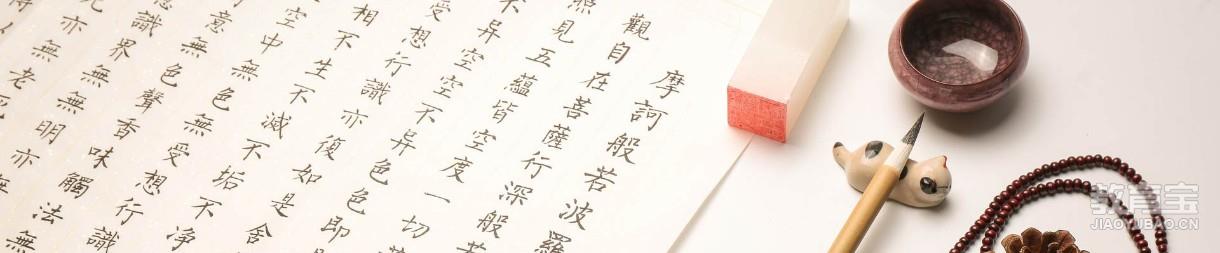 摩訶般若波羅
觀自在菩薩行深般若
照見五蘊皆空度一切
不异空空不异色色即
受想行識亦復如是舍
相不生不滅不垢不净
空中無色無受想行識
意無色聲香味觸法無
識界無無明亦無
亦無老死
教育宝
JIAOYUBAO.CN